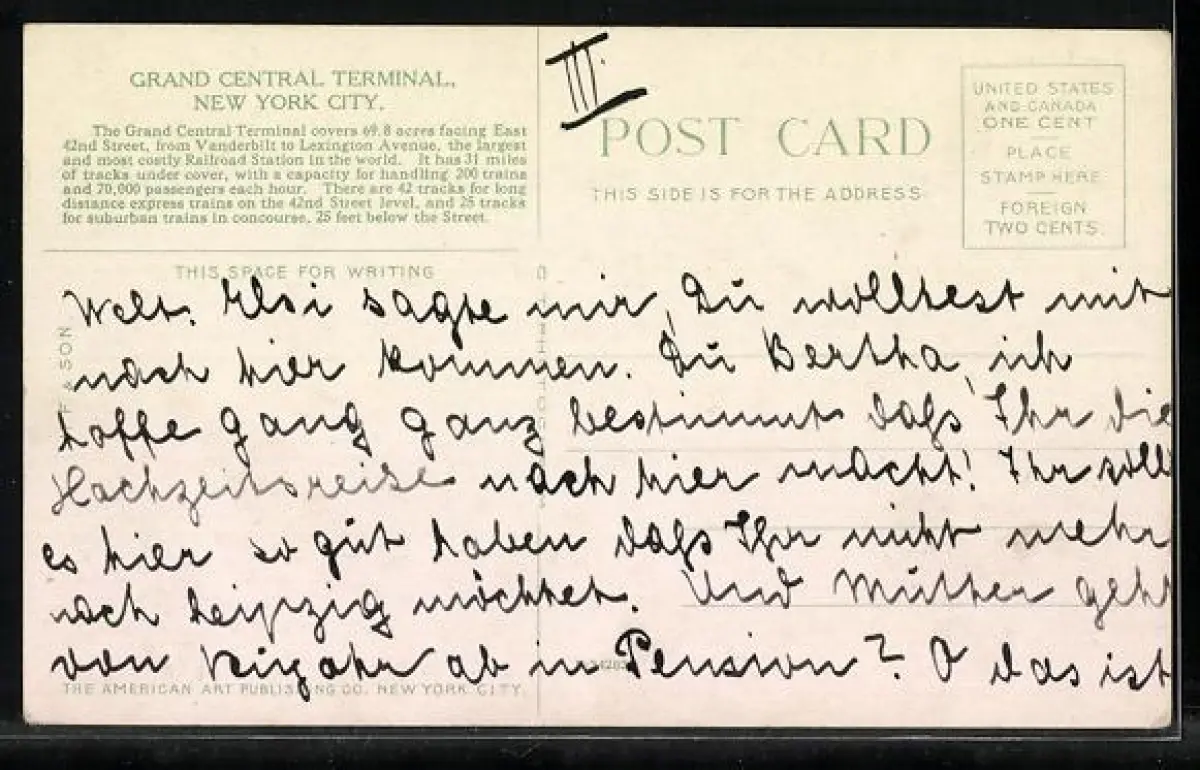 GRAND CENTRAL TERMINAL,
NEW YORK CITY.
The Grand Central Terminal covers 69.8 acres facing East
42nd Street, from Vanderbilt to Lexington Avenue, the largest
and most costly Railroad Station in the world. It has 31 miles
of tracks under cover, with a capacity for handling 200 trains
and 70,000 passengers each hour. There are 42 tracks for long
distance express trains on the 42nd Street level, and 25 tracks
for suburban trains in concourse, 25 feet below the Street.
III.
POST CARD
THIS SIDE IS FOR THE ADDRESS.
UNITED STATES
AND CANADA
ONE CENT
PLACE
STAMP HERE
FOREIGN
TWO CENTS.
THIS SPACE FOR WRITING
Welt. Elsi sagte mir, Du wolltest mit
nach hier kommen. Du Bertha, ich
hoffe ganz ganz bestimmt daß Ihr die
Hochzeitsreise nach hier macht! Ihr soll
es hier so gut haben daß Ihr nicht mehr
nach Leipzig möchtet. Und Mutter geht
von Neujahr ab in Pension? O das ist
THE AMERICAN ART PUBLISHING CO. NEW YORK CITY.